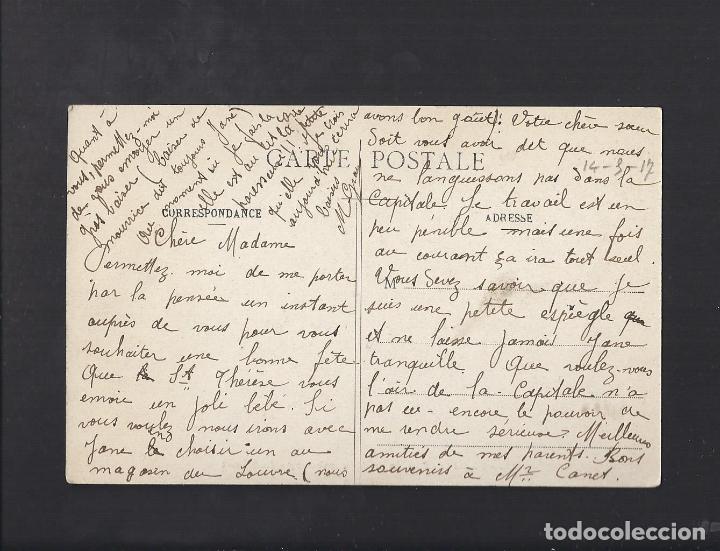 CARTE POSTALE
CORRESPONDANCE
ADRESSE
14-3-17
Chère Madame
Permettez moi de me porter
par la pensée un instant
auprès de vous pour vous
souhaiter une bonne fête
Que St Thérèse vous
envoie un joli bébé. Si
vous voulez nous irons avec
Jane en choisir un au
magasin du Louvre (nous
avons bon goût)! Votre chère sœur
Doit vous avoir dit que nous
ne languissons pas dans la
Capitale. Le travail est un
peu penible mais une fois
au courant ça ira tout seul.
M
Vous devez savoir que je
suis une petite espiègle
et ne laisse jamais Jane
tranquille. Que voulez-vous
l'air de la Capitale n'a
pas eu encore le pouvoir de
me rendre sérieuse. Meilleures
amitiés de mes parents. Bons
souvenirs à Mr Canet.
Quant à
vous, permettez-moi
de vous envoyer un
gros baiser (baiser de
nourrice dit toujours Jane)
Au moment où je fais la
elle est au lit la
paresseuse!
qu'elle
aujourd'hui
baisers